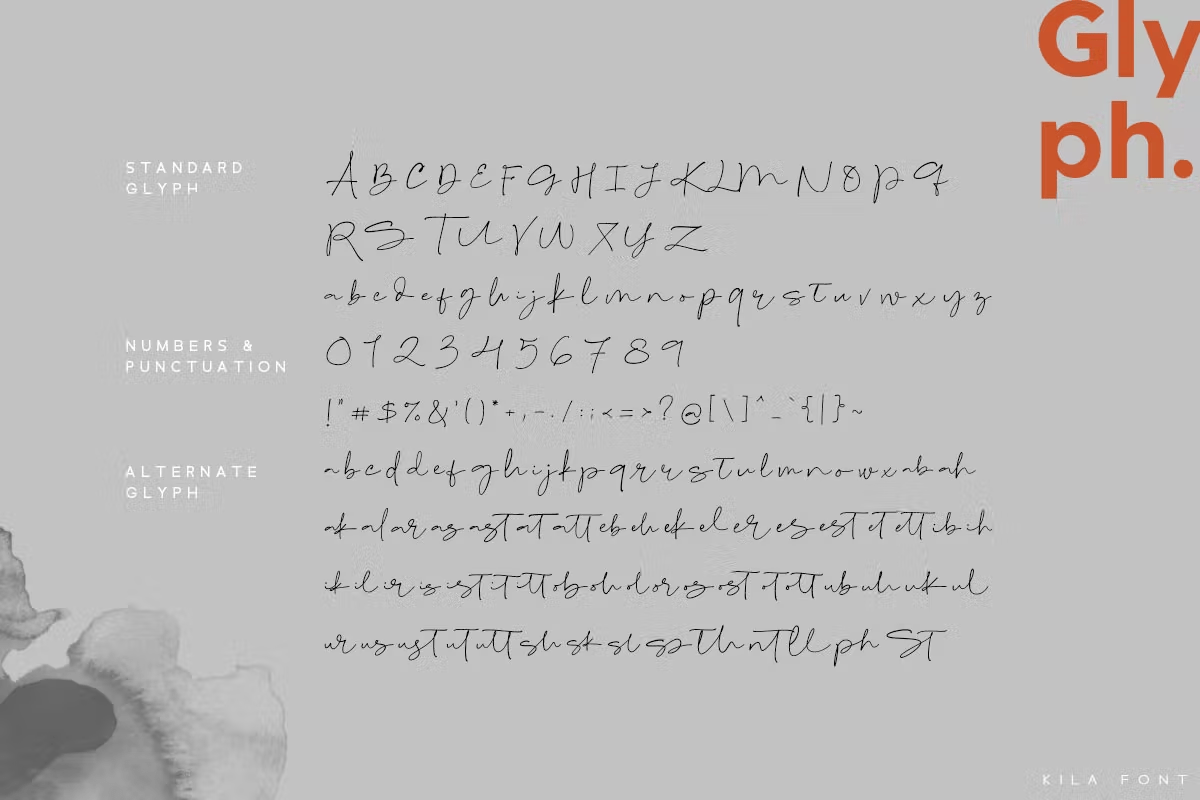 Gly
ph.
STANDARD
GLYPH
A B C D E F G H I J K L M N O P Q
R S T U V W X Y Z
a b c d e f g h i j k l m n o p q r s t u v w x y z
NUMBERS &
PUNCTUATION
0 1 2 3 4 5 6 7 8 9
! " # $ % & ' ( ) * + , - . / : ; < = > ? @ [ \ ] ^ _ ` { | } ~
ALTERNATE
GLYPH
a b c d d e f g h i j k p q r r s t u l m n o w x ab ah
ak al ar as ast at att eb eh ek el er es est et ett ib ih
ik il ir is ist it itt ob oh ol or os ost ot ott ub uh uk ul
ur us ust ut utt sh sk sl sp th nt ll ph St
KILA FONT